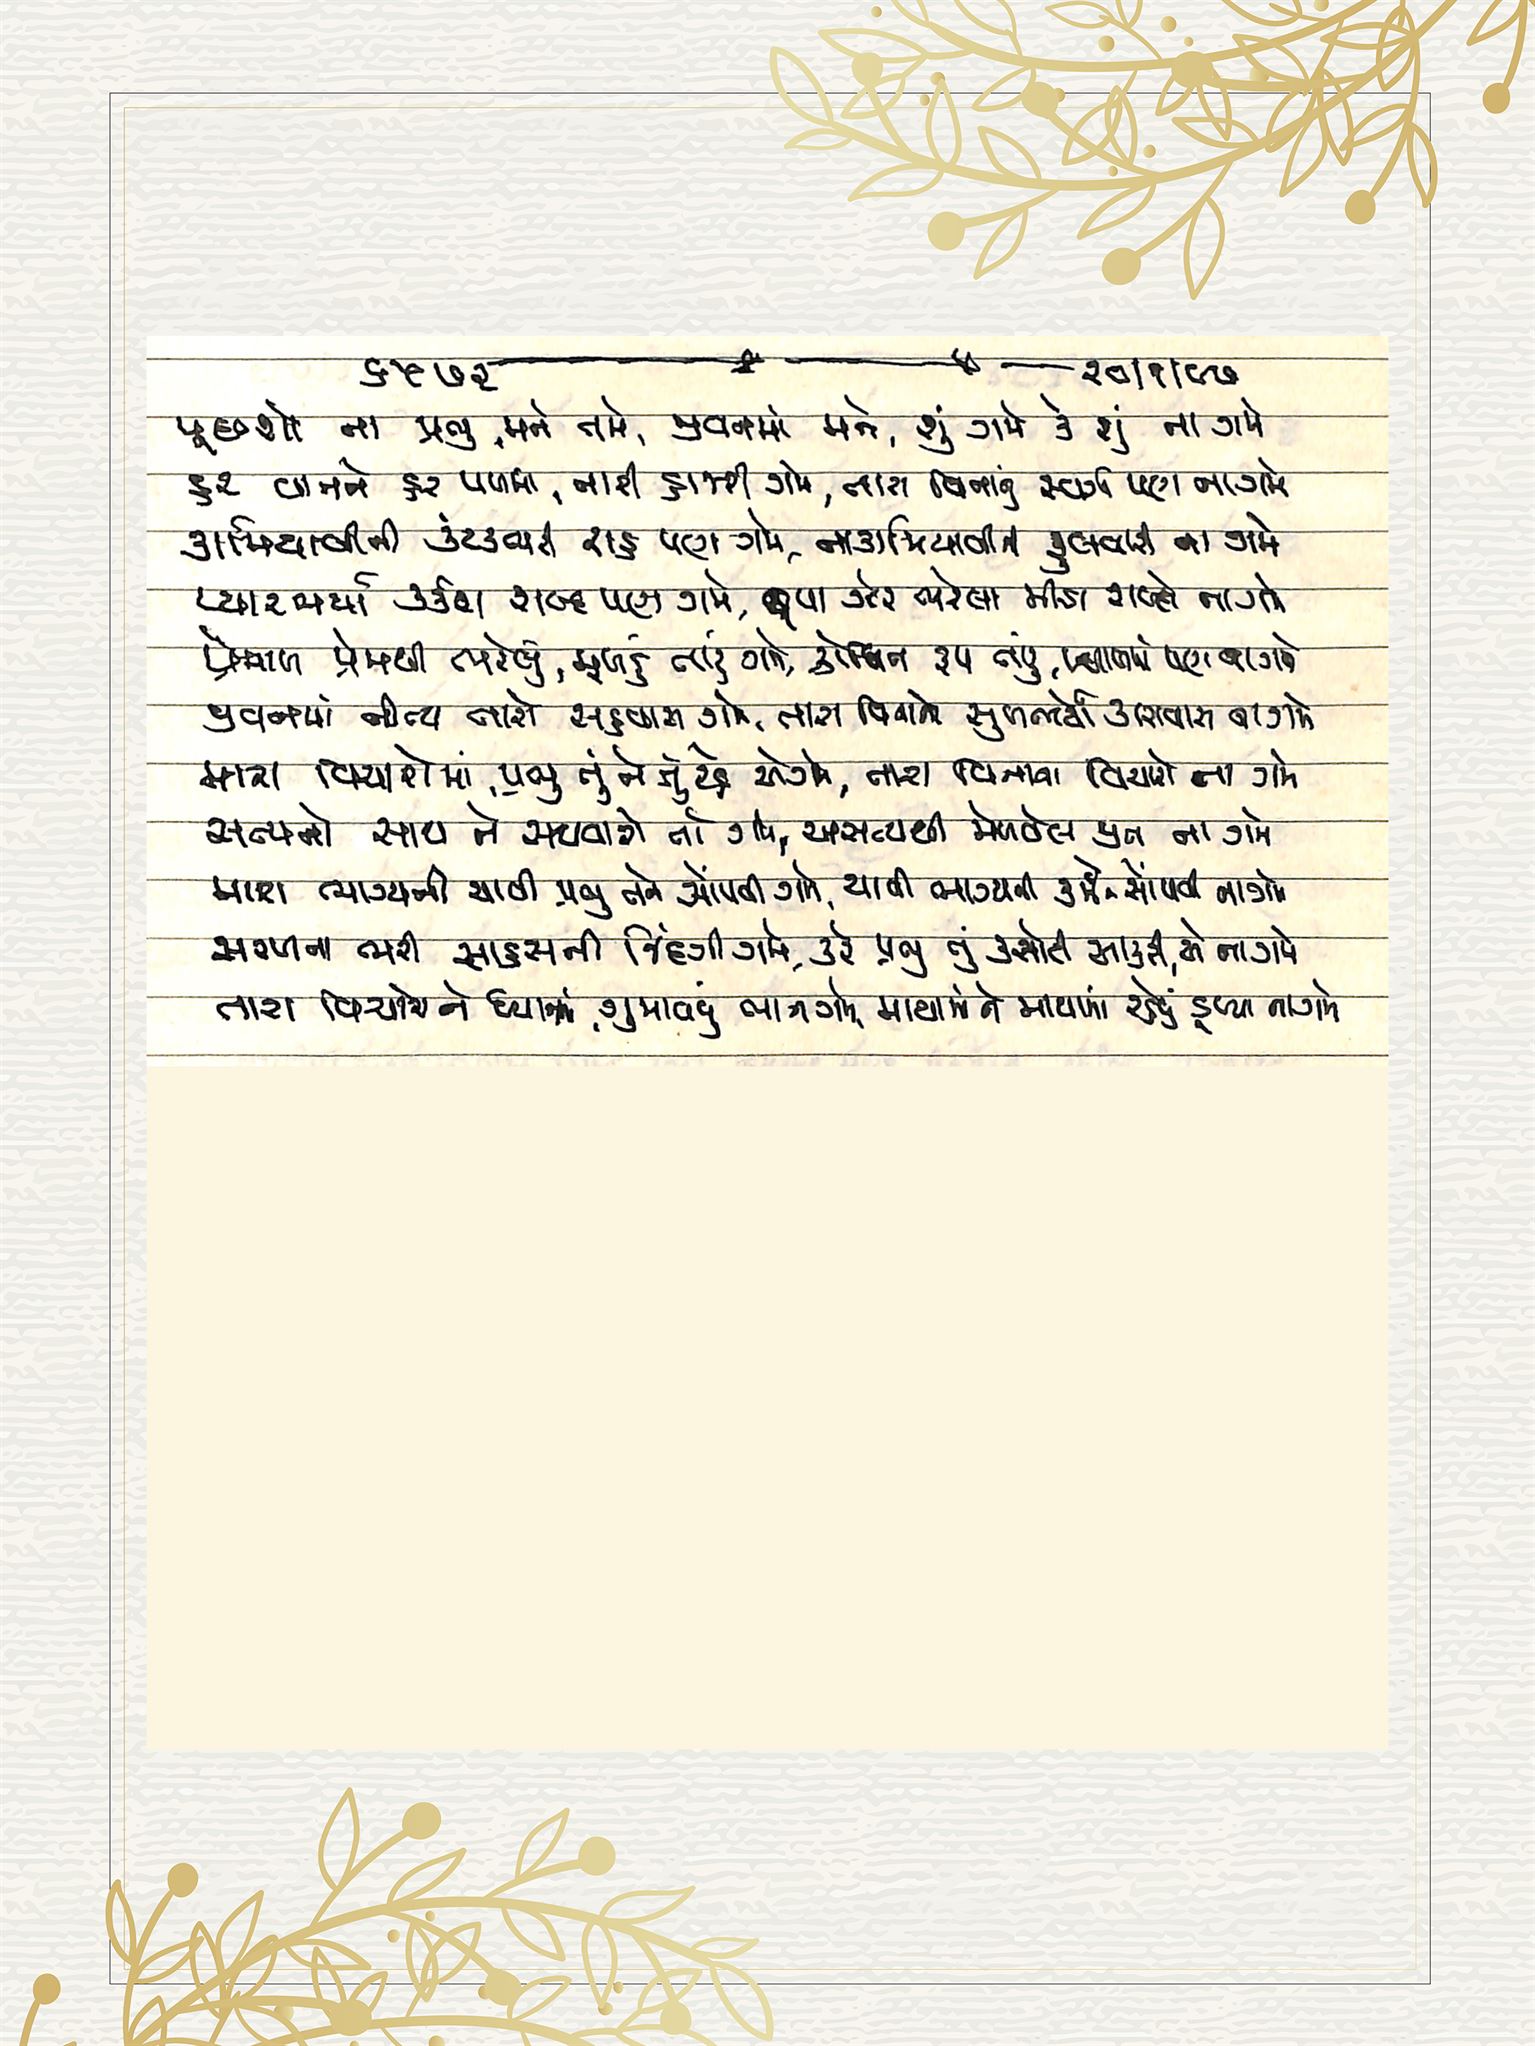 ૬૫૭૨ ૨૦/૧/૯૭
પૂછશો ના પ્રભુ, મને તમે, જીવનમાં મને, શું ગમે કે શું ના ગમે
હર વાતને હર પળમાં, તારી હાજરી ગમે, તારા વિનાનું સ્વર્ગ પણ ના ગમે
કામિયાબીની કંટકભરી રાહ પણ ગમે, નાકામિયાબીની ફુલવારી ના ગમે
પ્યારભર્યા કર્કશ શબ્દ પણ ગમે, છૂપા ઝેર ભરેલા મીઠા શબ્દો ના ગમે
પ્રેમાળ પ્રેમથી ભરેલું, મુખડું તારું ગમે, રૂપ તારું પણ ના ગમે
જીવનમાં નીત્ય તારો સહવાસ ગમે, તારા વિનાનો સુખભર્યો ના ગમે
મારા વિચારોમાં, પ્રભુ તું ને તું રહે એ ગમે, તારા વિનાના વિચારો ના ગમે
સત્યનો સાથ ને સથવારો તો ગમે, અસત્યથી મેળવેલ જીત ના ગમે
મારા ભાગ્યની ચાવી પ્રભુ તને સોંપવી ગમે, ચાવી ભાગ્યની સોંપવી ના ગમે
સરળતા ભરી સાહસની જિંદગી ગમે, કરે પ્રભુ તું કસોટી આકરી, એ ના ગમે
તારા વિચારો ને ધ્યાનમાં, ગુમાવવું ભાન ગમે, માયામાં ને માયામાં રહેવું ડૂબ્યા ના ગમે